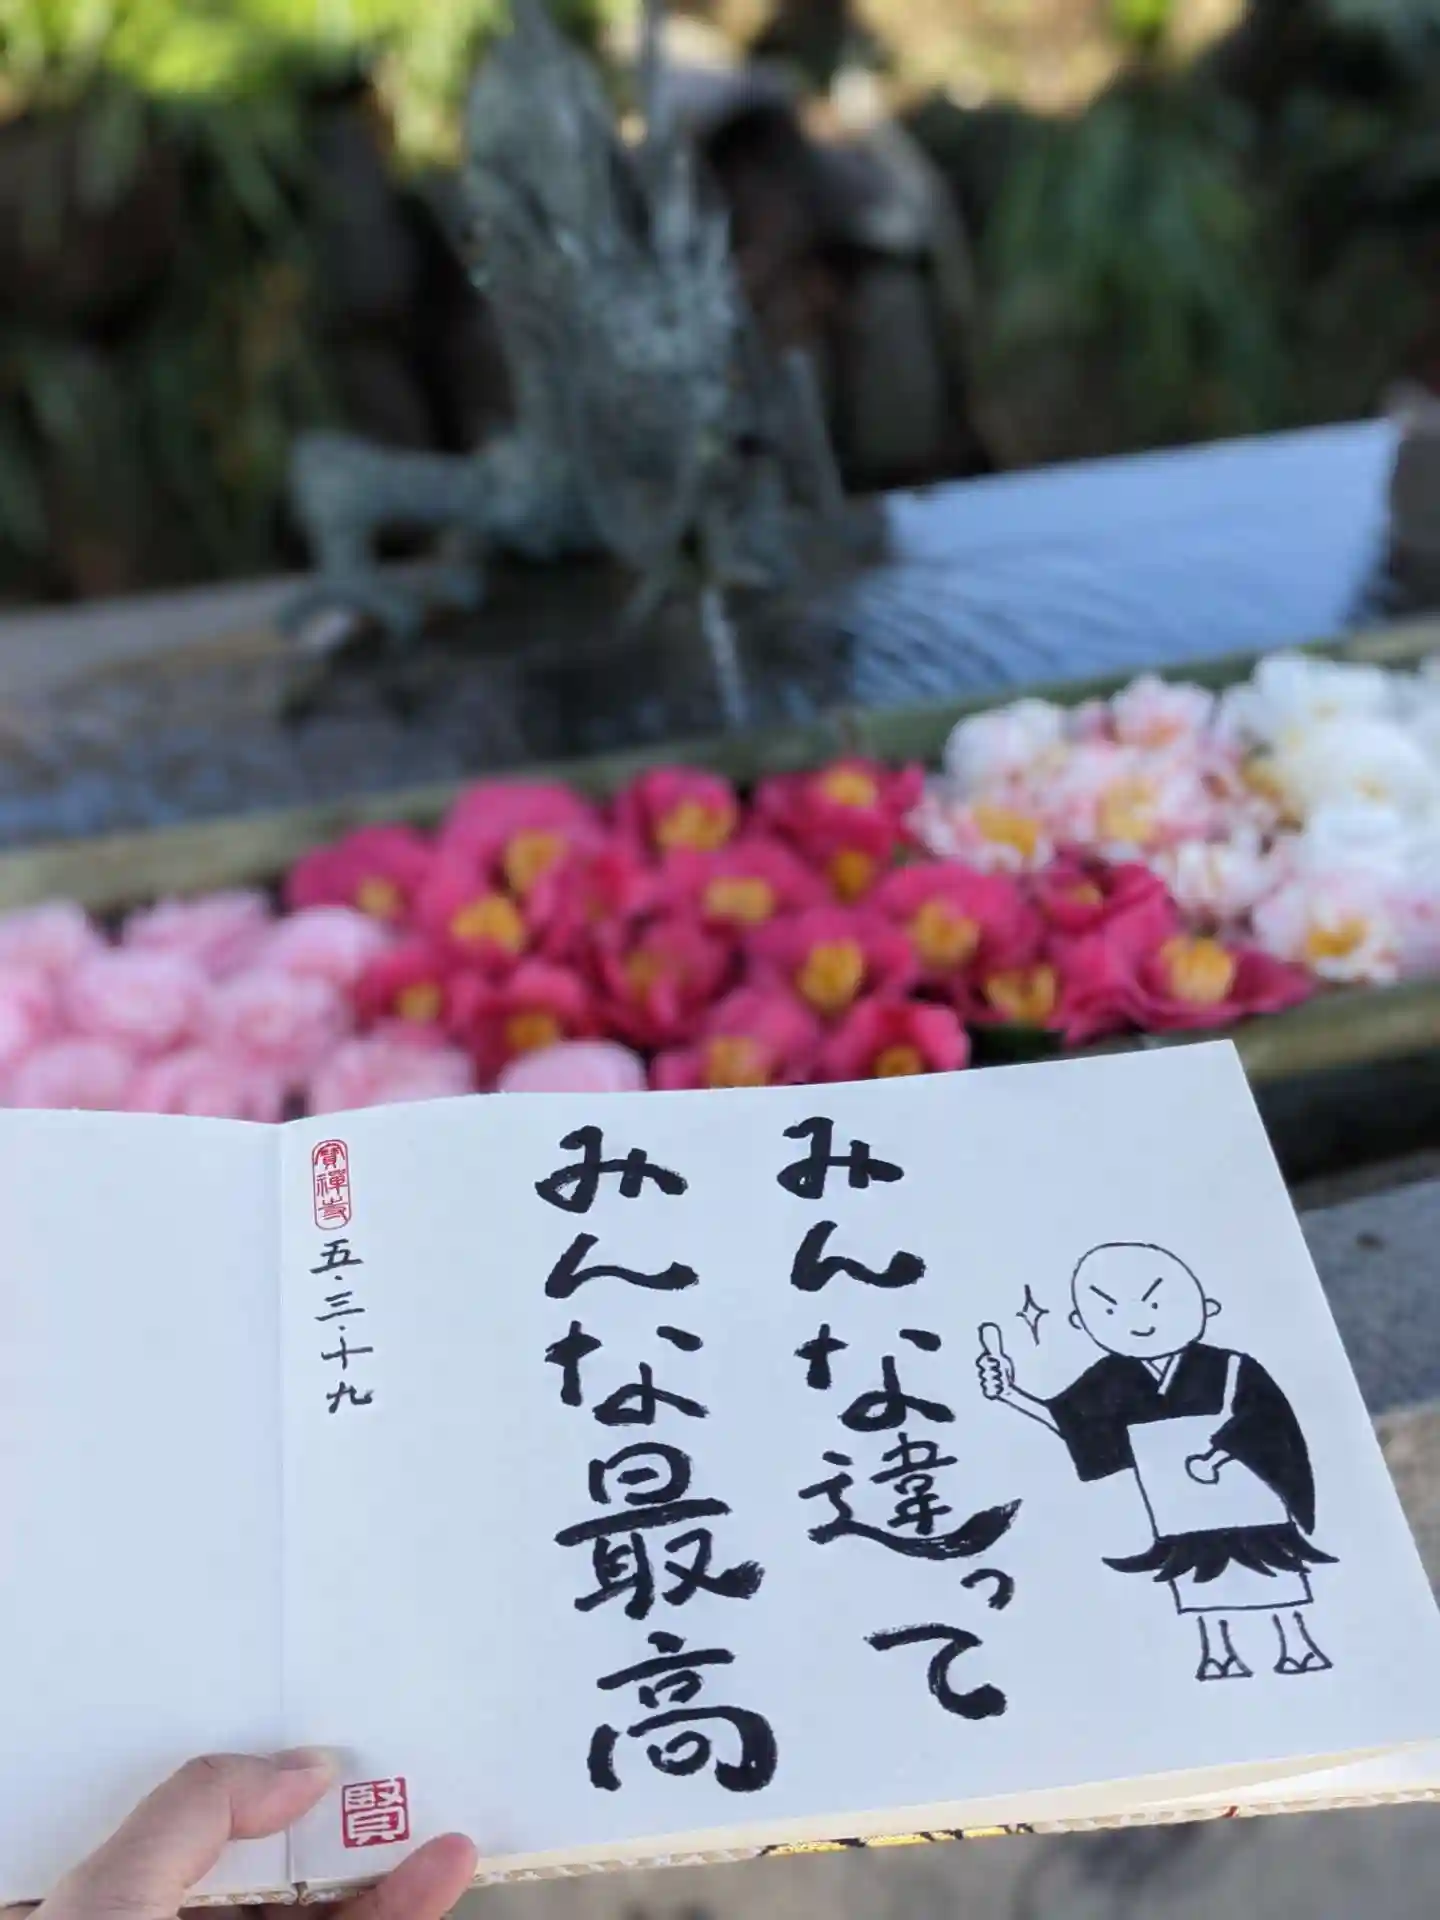 みんな違って
みんな最高
寶禅寺
五・三・十九
賢